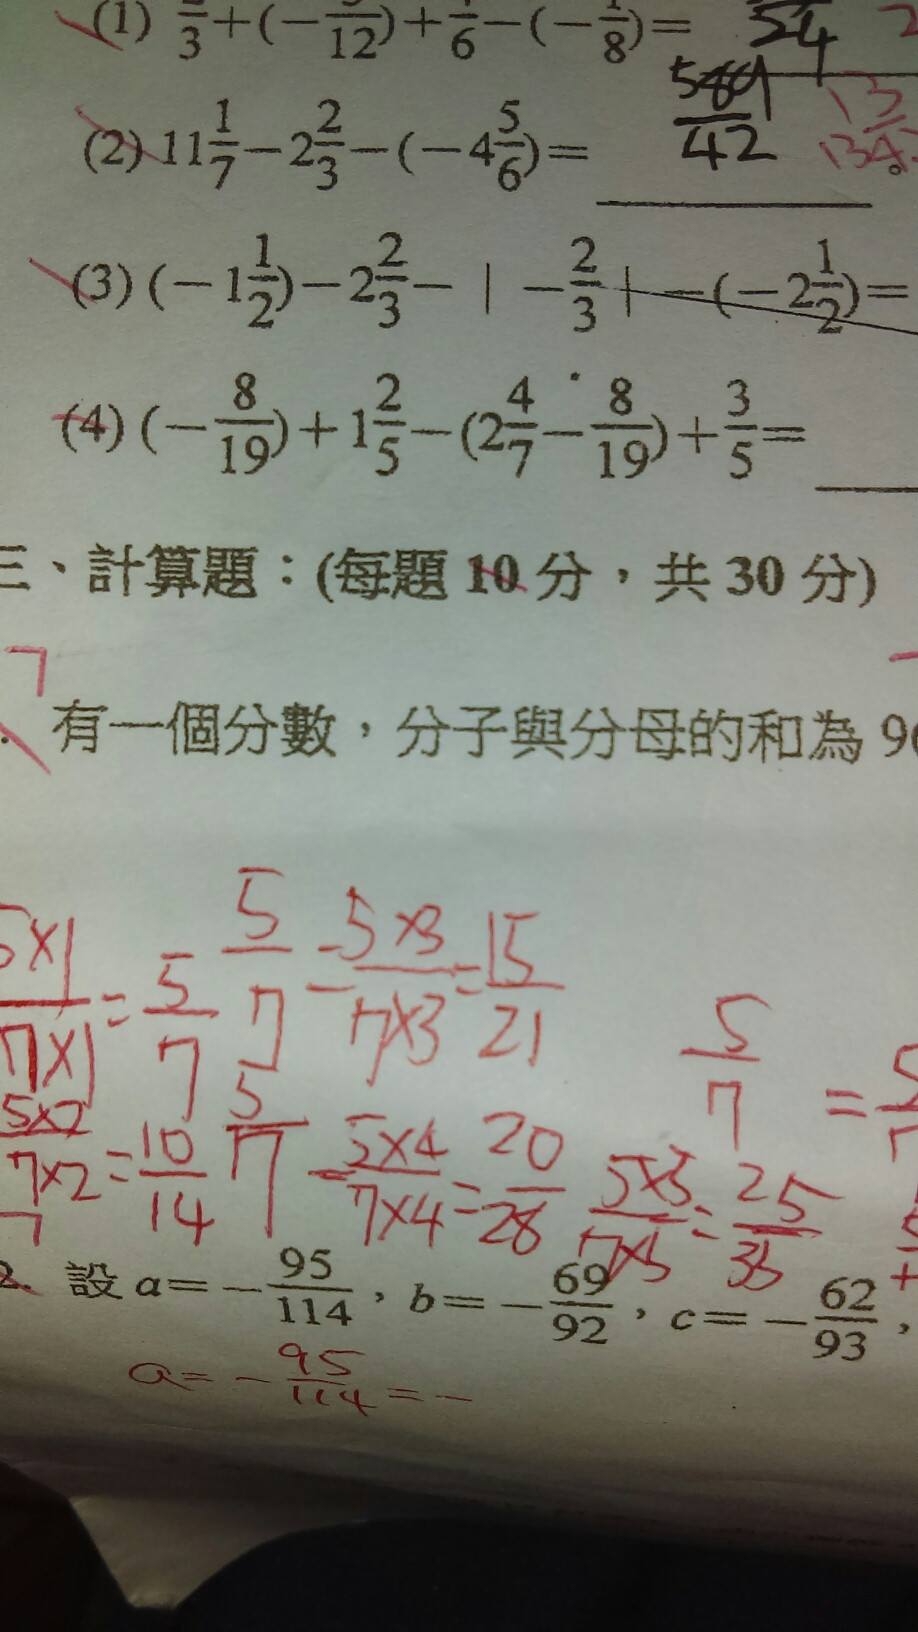 (1) 3+(−12)+6−(−8)= 54
(2) 11 1/7−2 2/3−(−4 5/6)= 589/42 13
(3) (−1 1/2)−2 2/3−|−2/3|−(−2 1/2)=
(4) (−8/19)+1 2/5−(2 4/7−8/19)+3/5=
三、計算題：(每題 10 分，共 30 分)
有一個分數，分子與分母的和為 9
5×1/7×1=5/7 5/7=5×3/7×3=15/21
5/7=
5×2/7×2=10/14 5/7=5×4/7×4=20/28 5×5/7×5=25/35
2. 設 a=−95/114，b=−69/92，c=−62/93，
a=−95/114=−